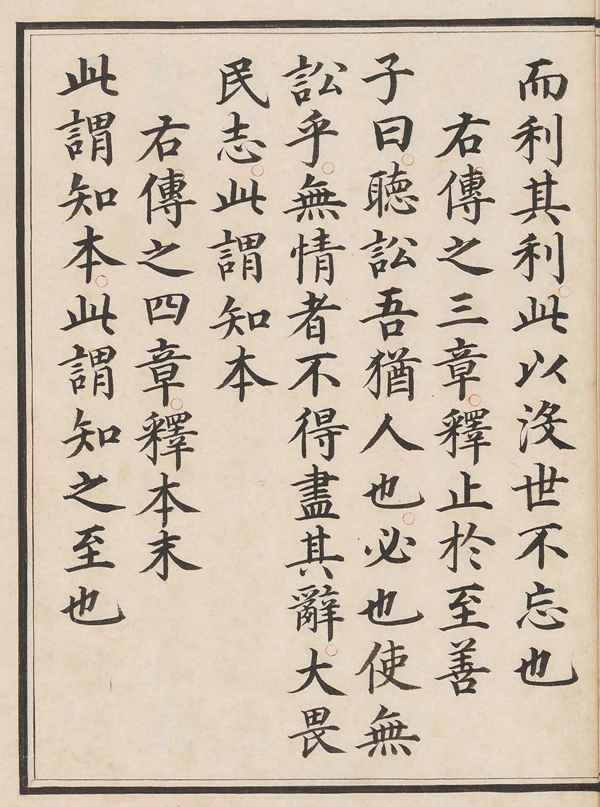 而利其利此以沒世不忘也
右傳之三章釋止於至善
子曰聽訟吾猶人也必也使無
訟乎無情者不得盡其辭大畏
民志此謂知本
右傳之四章釋本末
此謂知本此謂知之至也